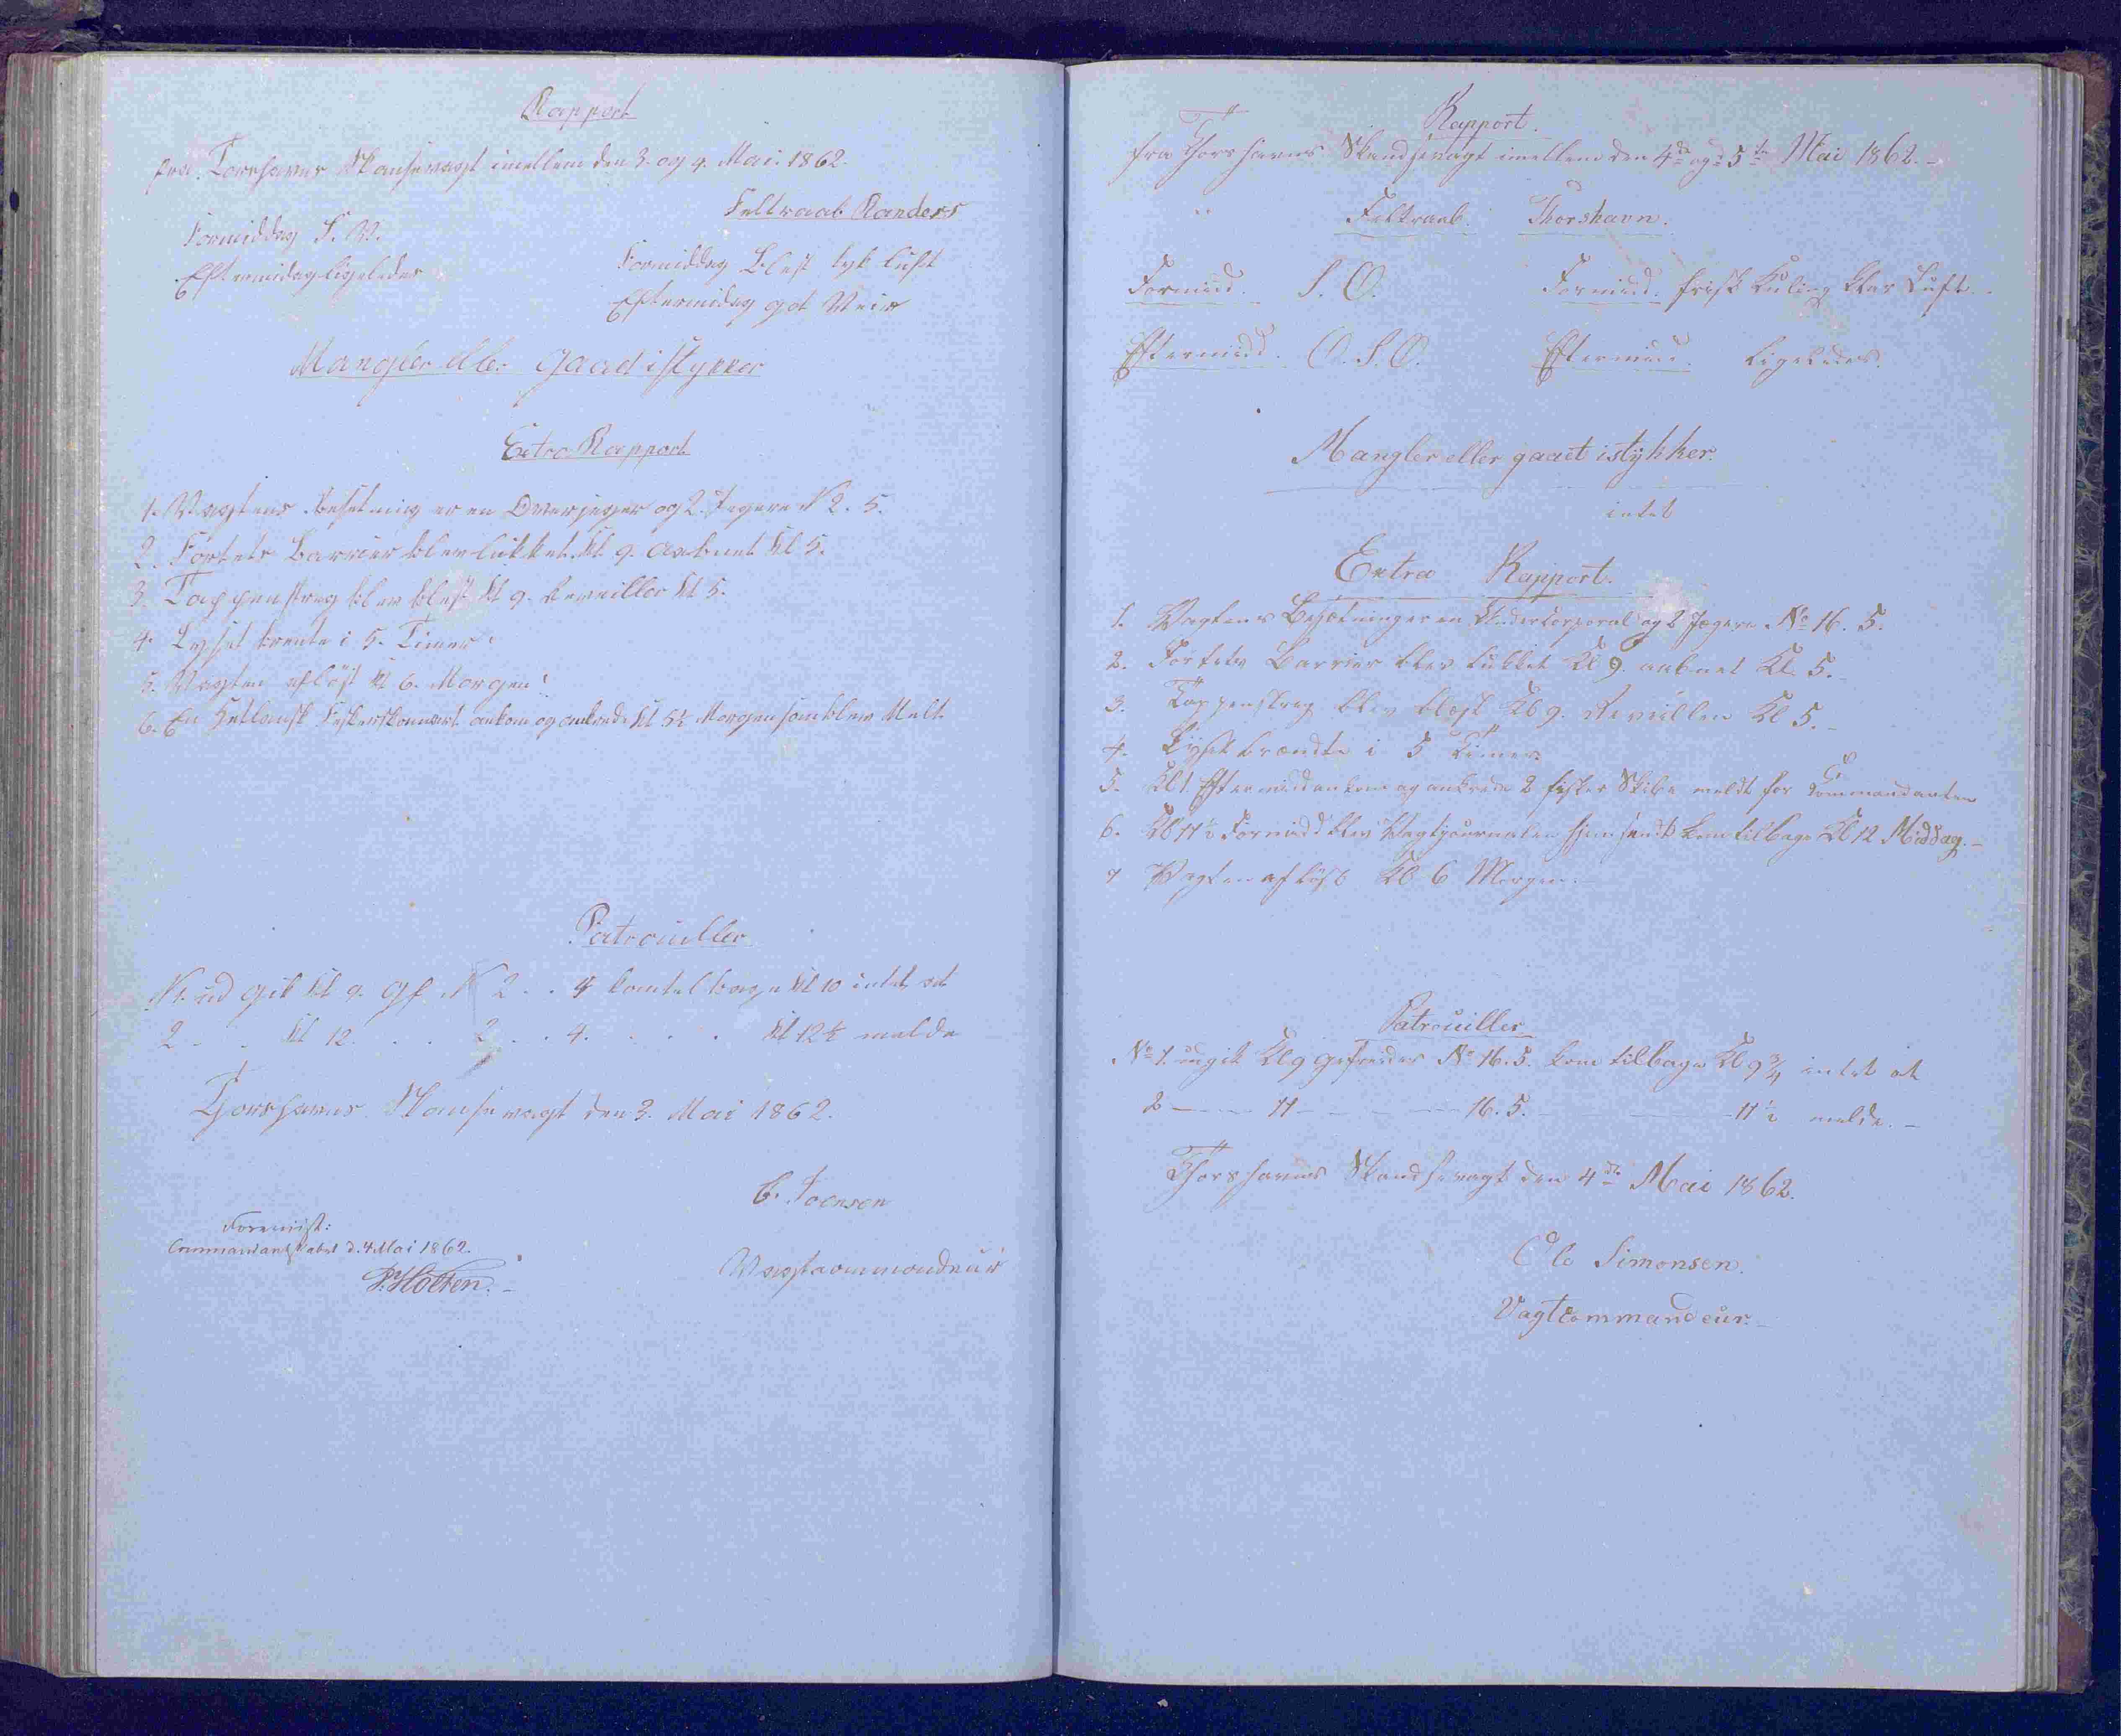 Rapport
fra Torshavns Skansevagt imellem den 3. og 4. Mai. 1862.
Feltraab Randers
Formiddag S. V.
Eftermidag ligeledes
Formiddag Blest tyk Luft
Eftermidag got Veir
Mangler eller gaad istykker
Extra Rapport
1. Vagtens besetning er en Overjeger og 2. Jegere N 2. 5.
2. Fortets Barrier blev lukket Kl. 9. aabnet Kl 5.
3. Tappenstreg blev blest Kl 9. Reveiller Kl 5.
4. Lyset brente i 5. Timer
5. Vagten aflöst Kl 6. Morgen
6. En Hetlansk Fisker ankom og ankrede Kl 5½ Morgen som blev Melt.
Patrouller
N 1. ud gik Kl 9. Gf. N 2 . . 4 kom telbage Kl 10 intet at
2 . . Kl 12. . . 2 . . 4. . . . . Kl 12½ melde
Thorshavns Skansevagt den 3. Mai 1862.
C. Joensen
Vagtcommandeur
Forevist:
Commandantskabet d. 4 Mai 1862.
P. Holten.
Rapport.
fra Thorshavns Skandsevagt imellem den 4de og 5te Mai 1862. -
Feltraab. Thorshavn.
Formidd. S. O. Formidd. frisk Kuling klar Luft.
Eftermidd. O. S. O. Eftermidd. ligeledes.
Mangler eller gaaet istykker.
intet
Extra Rapport.
1. Vagtens Besætning er en Underkorporal og 2 Jægere No 16. 5.
2. Fortets Barrier blev lukket Kl 9. aabnet Kl. 5. -
3. Tappenstreg blev blæst Kl 9. Reveillen Kl 5. -
4. Lyset brændte i 5 Timer
5. Kl 1. Eftermidd ankom og ankrede 2 fisker Skibe meldt for Commandanten
6. Kl 11½ Formidd blev Vagtjournalen hjem sendt kom tilbage Kl 12 Middag. -
7 Vagten afløst Kl 6 Morgen. -
Patrouiller
No 1. udgik Kl 9 Gefreider No 16. 5. kom tilbage Kl 9¾ intet at
2 — 11 — 16. 5. — 11½ melde. -
Thorshavns Skandsevagt den 4de Mai 1862.
Ole Simonsen.
Vagtcommandeur. -